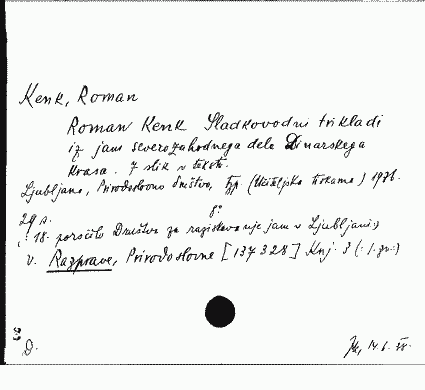 Kenk, Roman
Roman Kenk Sladkovodni trikladi
iz jam severozahodnega dela Dinarskega
krasa. 7 slik v tekstu.
Ljubljana, Prirodoslovno društvo, typ. (Učiteljska tiskarna)
8°
29 s.
(: 18. poročilo Društva za raziskavanje jam v Ljubljani:)
v. Razprave, Prirodoslovne [137328] Knj. 3 (: 1. zv.:)
D.